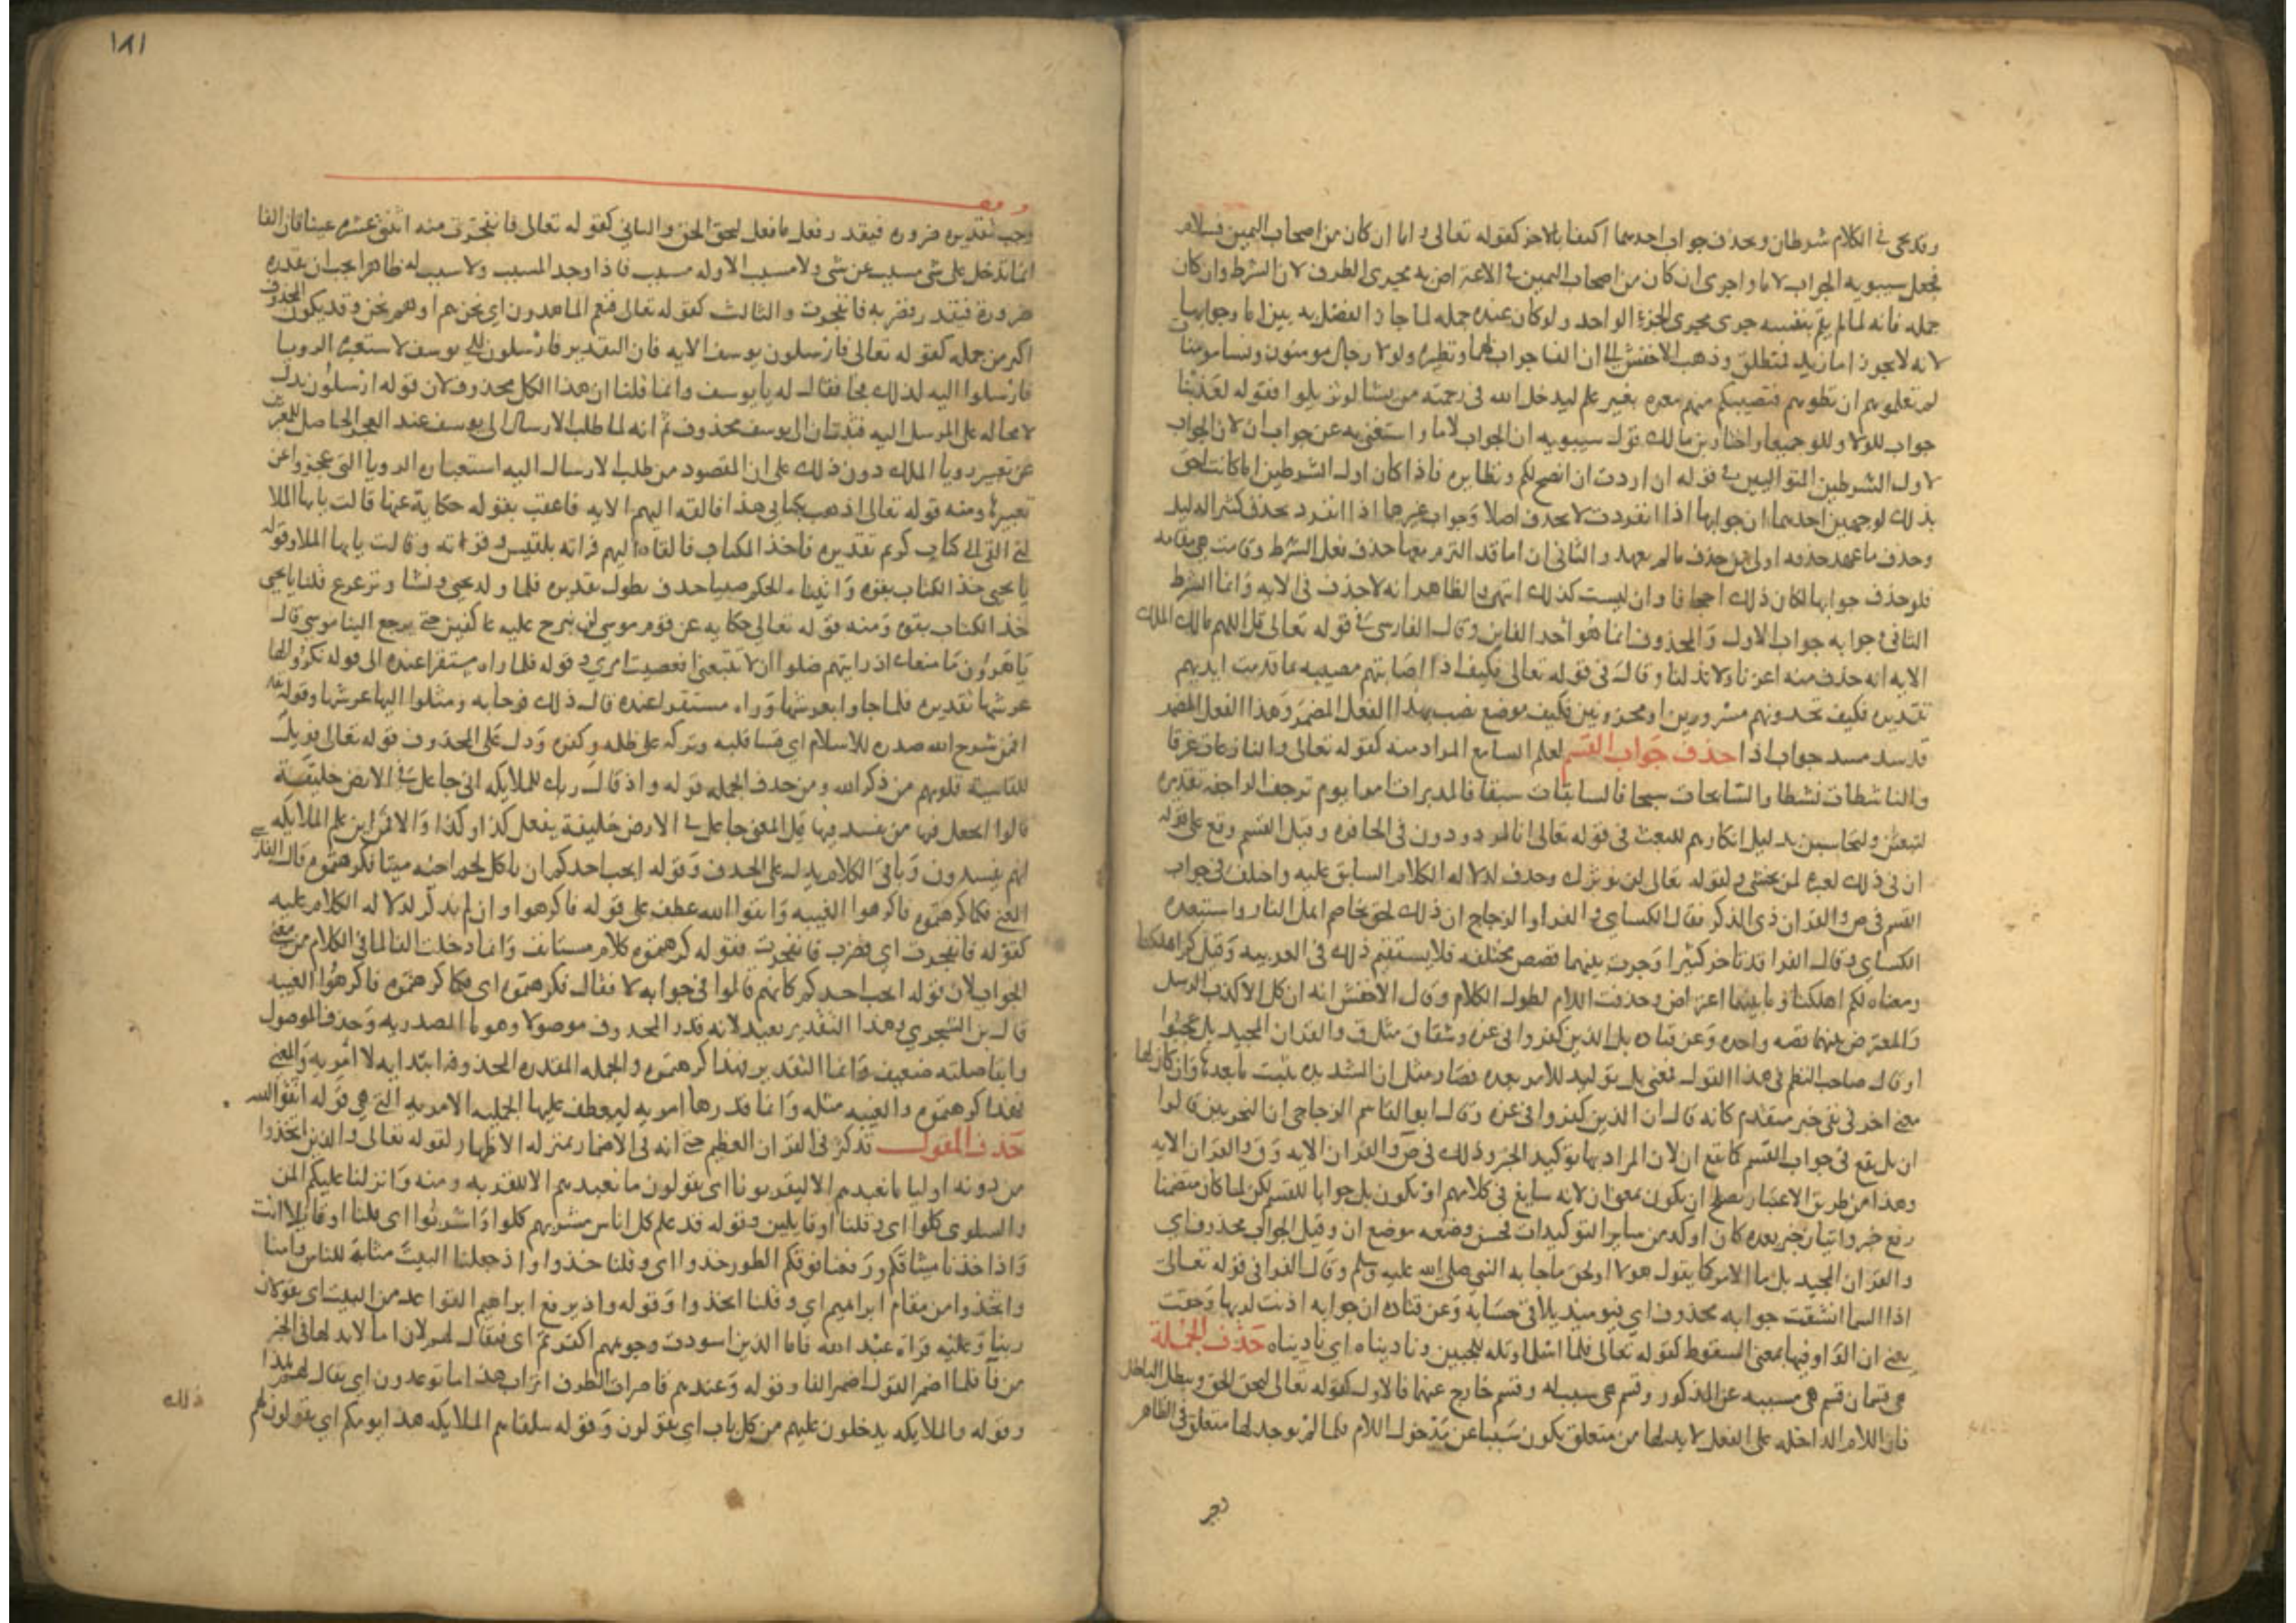 وقد يجى فى الكلام شرطان ويحذف جواب احدهما اكتفا بالاخر كقوله تعالى واما ان كان من اصحاب اليمين فسلام
فجعل سيبويه الجواب لاما واجرى ان كان من اصحاب اليمين فى الاعتراض به مجرى الظرف لان الشرط وان كان
جمله فانه لما لم يتم بنفسه جرى مجرى الجزء الواحد ولو كان عنده جمله لما جاز الفصل به بين اما وجوابها
لانه لا يجوز اما زيد فمنطلق وذهب الاخفش الى ان الفا جواب لهما ونظيره ولولا رجال مومنون ونسا مومنات
لم تعلموهم ان تطوهم فتصيبكم منهم معره بغير علم ليدخل الله فى رحمته من يشا لو تزيلوا فقوله لعذبنا
جواب للولا وللو جميعا واختار بن مالك قول سيبويه ان الجواب لاما واستغنى به عن جواب ان لان الجواب
لاول الشرطين المتواليين فى قوله ان اردت ان انصح لكم ونظايره فاذا كان اول الشرطين اما كانت احق
بذلك لوجهين احدهما ان جوابها اذا انفردت لا يحذف اصلا وجواب غيرها اذا انفرد يحذف كثيرا لدليل
وحذف ما عهد حذفه اولى من حذف ما لم يعهد والثانى ان اما قد التزم معها حذف فعل الشرط وقامت هى مقامه
فلو حذف جوابها لكان ذلك اجحافا وان ليست كذلك انتهى والظاهر انه لا حذف فى الايه وانما الشرط
الثانى وجوابه جواب الاول والمحذوف انما هو احد الفاين وقال الفارسى فى قوله تعالى قل اللهم مالك الملك
الايه انه حذف منه اعزنا ولا تذلنا وقال فى قوله تعالى فكيف اذا اصابتهم مصيبه بما قدمت ايديهم
تقديره فكيف تجدونهم مسرورين او محزونين فكيف موضع نصب بهذا الفعل المضمر وهذا الفعل المضمر
قد سد مسد جواب اذا حذف جواب القسم لعلم السامع المراد منه كقوله تعالى والنازعات غرقا
والناشطات نشطا والسابحات سبحا فالسابقات سبقا فالمدبرات امرا يوم ترجف الراجفه تقديره
لتبعثن ولتحاسبن بدليل انكارهم للبعث فى قوله تعالى انا لمردودون فى الحافره وقيل القسم وقع على قوله
ان فى ذلك لعبره لمن يخشى وكقوله تعالى لن نوثرك وحذف لدلاله الكلام السابق عليه واختلف فى جواب
القسم فى ص والقران ذى الذكر فقال الكساى والفرا والزجاج ان ذلك لحق تخاصم اهل النار واستبعده
الكساى وقال الفرا قد تاخر كثيرا وجرت بينهما قصص مختلفه فلا يستقيم ذلك فى العربيه وقيل كم اهلكنا
ومعناه لكم اهلكنا وما بينهما اعتراض وحذفت اللام لطول الكلام وقال الاخفش انه ان كل الا كذب الرسل
والمعترض بينهما قصه واحده وعن قتاده بل الذين كفروا فى عزه وشقاق مثل ق والقران المجيد بل عجبوا
وقال صاحب النظم فى هذا القول فمعنى بل توكيد للامر بعده فصار مثل ان الشديده تثبت ما بعدها وان كان لها
معنى اخر فى نفى خبر متقدم كانه قال ان الذين كفروا فى عزه وقال ابو القاسم الزجاجى ان النحويين قالوا
ان بل تقع فى جواب القسم كما تقع ان لان المراد بها توكيد الخبر وذلك فى ص والقران الايه وق والقران الايه
وهذا من طريق الاعتبار يصلح ان يكون بمعنى ان لانه سايغ فى كلامهم او تكون بل جوابا للقسم لكن لما كان متضمنا
رفع خبر واتيان خبر بعده كان اوكد من ساير التوكيدات فحسن وضعه موضع ان وقيل الجواب محذوف اى
والقران المجيد بل ما الامر كما يقول هولا او لحق ما جا به النبى صلى الله عليه وسلم وقال الفرا فى قوله تعالى
اذا السما انشقت جوابه محذوف اى فيوميذ يلاقى حسابه وعن قتاده ان جوابه اذنت لربها وحقت
يعنى ان الواو فيها بمعنى السقوط كقوله تعالى فلما اسلما وتله للجبين وناديناه اى ناديناه حذف الجملة
هى قسمان قسم هى مسببه عن المذكور وقسم هى سبب له وقسم خارج عنهما فالاول كقوله تعالى ليحق الحق ويبطل الباطل
فان اللام الداخله على الفعل لا بد لها من متعلق يكون سببا عن مدخول اللام فلما لم يوجد لها متعلق فى الظاهر
١٨١
وجب تقديره ضروره فيقدر فعل ما فعل ليحق الحق والثانى كقوله تعالى فانفجرت منه اثنتى عشره عينا فان الفا
انما تدخل على شى مسبب عن شى ولا مسبب الا وله سبب فاذا وجد المسبب ولا سبب له ظاهرا يجب ان يقدره
ضرورة فيقدر فضربه فانفجرت والثالث كقوله تعالى فنعم الماهدون اى نحن هم او هم نحن وقد يكون المحذوف
اكثر من جمله كقوله تعالى فارسلون يوسف الايه فان التقدير فارسلون الى يوسف لاستعبره الرويا
فارسلوا اليه لذلك فجا فقال له يا يوسف وانما قلنا ان هذا الكل محذوف لان قوله ارسلون يدل
لا محاله على المرسل اليه فثبت ان الى يوسف محذوف ثم انه لما طلب الارسال الى يوسف عند العجز الحاصل للمعبرين
عن تعبير رويا الملك دون ذلك على ان المقصود من طلب الارسال اليه استعباره الرويا التى عجزوا عن
تعبيرها ومنه قوله تعالى اذهب بكتابى هذا فالقه اليهم الايه فاعقب بقوله حكاية عنها قالت يايها الملا
انى القى الى كتاب كريم تقديره فاخذ الكتاب فالقاه اليهم فراته بلقيس وقراته وقالت يايها الملا وقوله
يا يحيى خذ الكتاب بقوه واتيناه الحكم صبيا حذف يطول تقديره فلما ولد يحيى ونشا وترعرع قلنا يا يحيى
خذ الكتاب بقوه ومنه قوله تعالى حكايه عن قوم موسى لن نبرح عليه عاكفين حتى يرجع الينا موسى قال
يا هرون ما منعك اذ رايتهم ضلوا ان لا تتبعنى افعصيت امرى وقوله فلما راه مستقرا عنده الى قوله نكروا لها
عرشها تقديره فلما جاوا بعرشها وراه مستقرا عنده قال ذلك فرحا به ومثلوا اليها عرشها وقوله
افمن شرح الله صدره للاسلام اى قسا قلبه وتركه على ظلمه وكفره ودل على المحذوف قوله تعالى فويل
للقاسية قلوبهم من ذكر الله ومن حذف الجمله قوله واذ قال ربك للملايكه انى جاعل فى الارض خليفة
قالوا اتجعل فيها من يفسد فيها قيل المعنى جاعل فى الارض خليفة يفعل كذا وكذا والا فمن اين علم الملايكه
انهم يفسدون وباقى الكلام يدل على الحذف وقوله ايحب احدكم ان ياكل لحم اخيه ميتا فكرهتموه قال الفارسى
المعنى فكما كرهتموه فاكرهوا الغيبه واتقوا الله عطف على قوله فاكرهوا وان لم يذكر لدلاله الكلام عليه
كقوله فانفجرت اى فضرب فانفجرت فقوله كرهتموه كلام مستانف وانما دخلت الفا لما فى الكلام من معنى
الجواب لان قوله ايحب احدكم كانهم قالوا فى جوابه لا فقال فكرهتموه اى فكما كرهتموه فاكرهوا الغيبه
قال بن الشجرى وهذا التقدير بعيد لانه قدر المحذوف موصولا وهو ما المصدريه وحذف الموصول
وابقا صلته ضعيف وانما التقدير فهذا كرهتموه والجمله المقدره المحذوفه ابتدايه لا امريه والمعنى
فهذا كرهتموه والغيبه مثله وانما قدرها امريه ليعطف عليها الجمله الامريه التى هى قوله اتقوا الله
حذف القول قد كثر فى القران العظيم حتى انه فى الاضمار بمنزله الاظهار كقوله تعالى والذين اتخذوا
من دونه اوليا ما نعبدهم الا ليقربونا اى يقولون ما نعبدهم الا للقربه ومنه وانزلنا عليكم المن
والسلوى كلوا اى وقلنا او قايلين وقوله قد علم كل اناس مشربهم كلوا واشربوا اى قلنا او قايلا انت
واذ اخذنا ميثاقكم ورفعنا فوقكم الطور خذوا اى وقلنا خذوا واذ جعلنا البيت مثابة للناس وامنا
واتخذوا من مقام ابراهيم اى وقلنا اتخذوا وقوله واذ يرفع ابراهيم القواعد من البيت اى يقولان
ربنا وعليه قراه عبد الله فاما الذين اسودت وجوههم اكفرتم اى فيقال لهم لان اما لا بد لها فى الخبر
من فا فلما اضمر القول اضمر الفا وقوله وعندهم قاصرات الطرف اتراب هذا ما توعدون اى يقال لهم هذا
وقوله والملايكه يدخلون عليهم من كل باب اى يقولون وقوله ستلقاهم الملايكه هذا يومكم اى يقولون لهم
ذلك